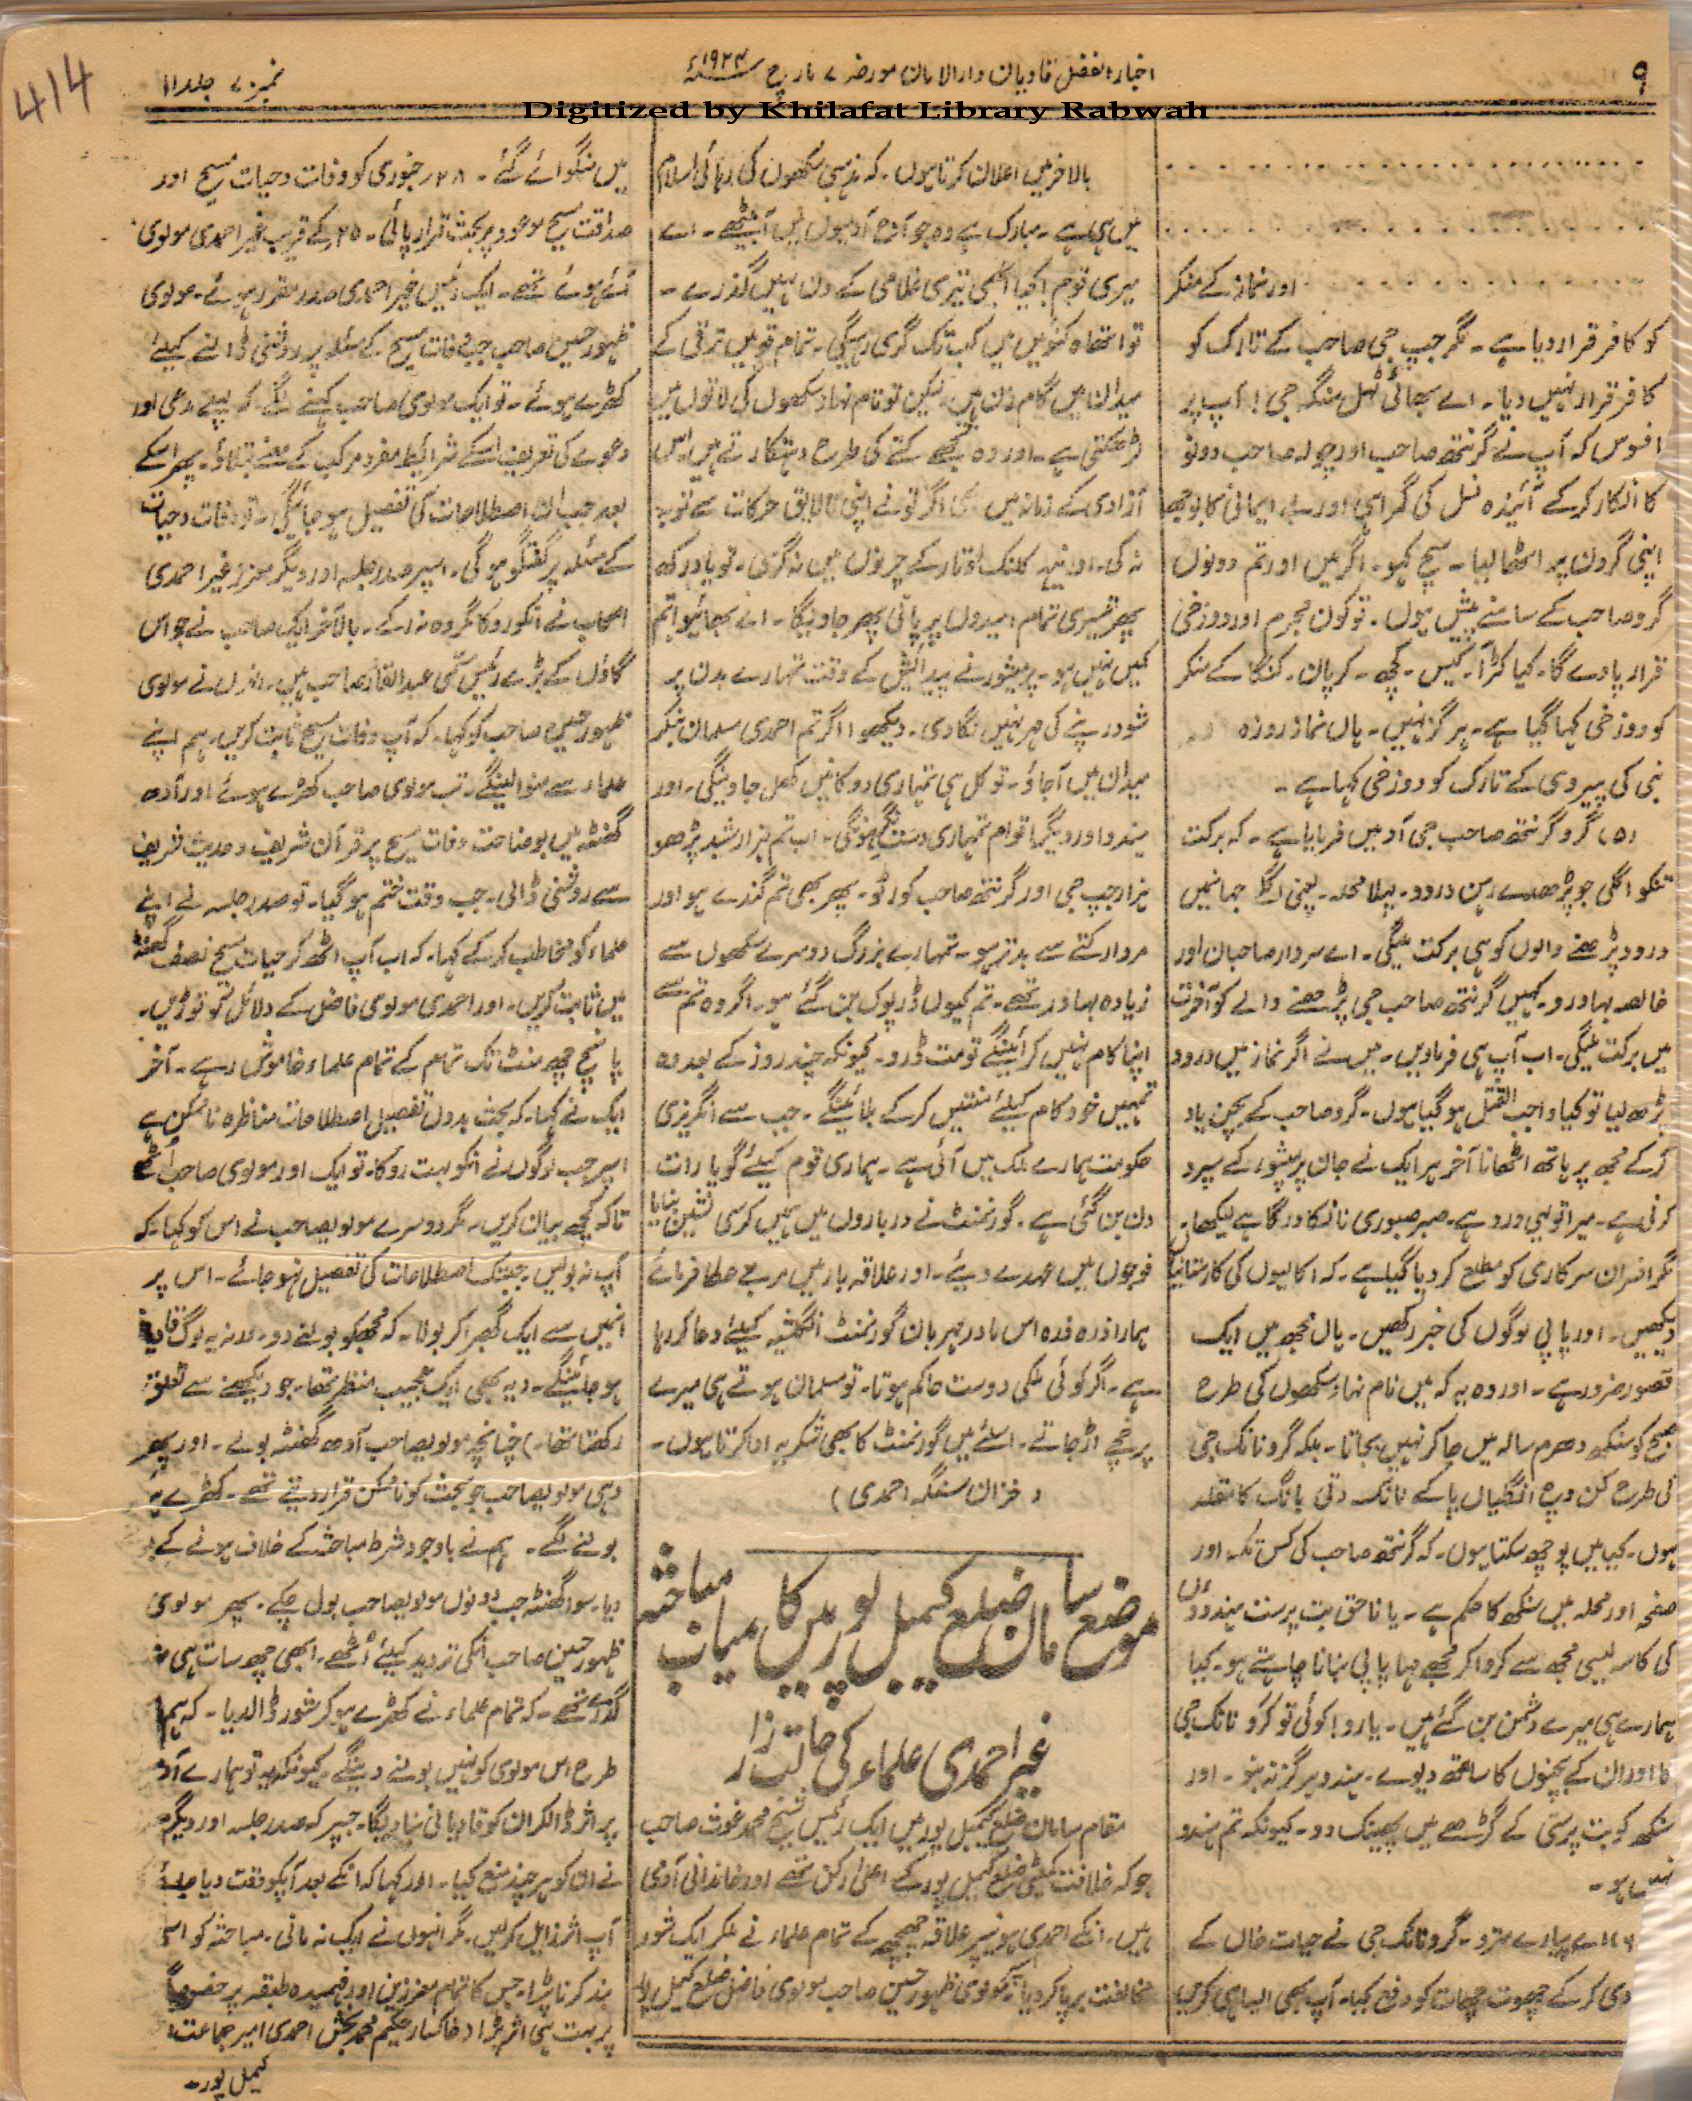 ۹
اخبار الفضل قادیان دارالامان مورخہ ۷ مارچ ۱۹۲۴ء
نمبر ۷۰ جلد ۱۱
414
Digitized by Khilafat Library Rabwah
اور نماز کے منکر
کو کافر قرار دیا ہے۔ مگر جپ جی صاحب کے تارک کو
کافر قرار نہیں دیا۔ اے بھائی ٹہل سنگھ جی! آپ پر
افسوس کہ آپ نے گرنتھ صاحب اور چولہ صاحب دونو
کا انکار کر کے آئیندہ نسل کی گمراہی اور بے ایمانی کا بوجھ
اپنی گردن پر اٹھا لیا۔ سچ کہو۔ اگر میں اور تم دونوں
گرو صاحب کے سامنے پیش ہوں۔ تو کون مجرم اور دوزخی
قرار پاوے گا۔ کیا کڑا۔ کیس۔ کچھ۔ کرپان۔ کنگا کے منکر
کو دوزخی کہا گیا ہے۔ ہرگز نہیں۔ ہاں نماز روزہ
نبی کی پیروی کے تارک کو دوزخی کہا ہے۔
(۵) گرو گرنتھ صاحب جی آد میں فرمایا ہے۔ کہ برکت
تنکو اگلی جو پڑھدے رہن درود۔ پہلا محلہ۔ یعنی اگلا جہانمیں
درود پڑھنے والوں کو ہی برکت ملیگی۔ اے سردار صاحبان اور
خالصہ بہادرو۔ کہیں گرنتھ صاحب جی پڑھنے والے کو آخرت
میں برکت ملیگی۔ اب آپ ہی فرماویں۔ میں نے اگر نماز میں درود
پڑھ لیا تو کیا واجب القتل ہو گیا ہوں۔ گرو صاحب کے بچن یاد
کر کے مجھ پر ہاتھ اٹھانا آخر ہر ایک نے جان پرمیشور کے سپرد
کرنی ہے۔ میرا تو یہی ورد ہے۔ صبر صبوری نانکا درگاہے لیکھا۔
مگر افسران سرکاری کو مطلع کر دیا گیا ہے۔ کہ اکالیوں کی کارستانیاں
دیکھیں۔ اور پاپی لوگوں کی خبر رکھیں۔ ہاں مجھ میں ایک
قصور ضرور ہے۔ اور وہ یہ کہ میں نام نہاد سکھوں کی طرح
صبح کو سنکھ دھرم سالہ میں جا کر نہیں بجاتا۔ بلکہ گرو نانک جی
کی طرح کن وچ انگلیاں پا کے نانک دتی بانگ کا مقلد
ہوں۔ کیا میں پوچھ سکتا ہوں۔ کہ گرنتھ صاحب کی کس تک اور
صفحہ اور محلہ میں سنکھ کا حکم ہے۔ یا ناحق بت پرست ہندوؤں
کی کاسہ لیسی مجھ سے کروا کر مجھے مہا پاپی بنانا چاہتے ہو۔ کیا
ہمارے ہی میرے دشمن بن گئے ہیں۔ یارو! کوئی تو گرو نانک جی
کا اور ان کے بچنوں کا ساتھ دیوے۔ ہندو ہرگز نہ بنو۔ اور
سنکھ کو بت پرستی کے گڑھے میں پھینک دو۔ کیونکہ تم ہندو
نہیں ہو۔
(۶) اے پیارے مترو۔ گرو نانک جی نے حیات خاں کے
دی کر کے چھوت چھات کو دفع کیا۔ آپ بھی ایسا ہی کریں
بالآخر میں اعلان کرتا ہوں۔ کہ مذہبی سکھوں کی رہائی اسلام
میں ہی ہے۔ مبارک ہے وہ جو آوے آدمیوں میں آ بیٹھے۔ اے
میری قوم! کیا ابھی تیری غلامی کے دن نہیں گذرے۔
تو اتھاہ کنوئیں میں کب تک گری رہیگی۔ تمام قومیں ترقی کے
میدان میں گام زن ہیں۔ لیکن تو نام نہاد سکھوں کی لاتوں میں
لڑھکتی ہے۔ اور وہ تجھے کتے کی طرح دہتکارتے ہیں۔ اس
آزادی کے زمانہ میں بھی اگر تو نے اپنی نالائق حرکات سے توبہ
نہ کی۔ اور نہہ کلنک اوتار کے چرنوں میں نہ گری۔ تو یاد رکھ
پھر تیری تمام امیدوں پر پانی پھر جاویگا۔ اے بھائیو! تم
کمیں نہیں ہو۔ پرمیشور نے پیدائیش کے وقت تمہارے بدن پر
شودر پنے کی مہر نہیں لگا دی۔ دیکھو! اگر تم احمدی مسلمان بنکر
میدان میں آجاؤ۔ تو کل ہی تمہاری دوکانیں کھل جاوینگی۔ اور
ہندو اور دیگر اقوام تمہاری دست نگر ہونگی۔ اب تم ہزار شبد پڑھو
ہزار جپ جی اور گرنتھ صاحب کو رٹو۔ پھر بھی تم گندے ہو اور
مردار کتے سے بدتر ہو۔ تمہارے بزرگ دوسرے سکھوں سے
زیادہ بہادر تھے۔ تم کیوں ڈرپوک بن گئے ہو۔ اگر وہ تم سے
اپنا کام نہیں کرائینگے تو مت ڈرو۔ کیونکہ چند روز کے بعد وہ
تمہیں خود کام کیلئے منتیں کر کے بلائینگے۔ جب سے انگریزی
حکومت ہمارے ملک میں آئی ہے۔ ہماری قوم کیلئے گویا رات
دن بن گئی ہے۔ گورنمنٹ نے درباروں میں ہمیں کرسی نشین بنایا
فوجوں میں عہدے دیئے۔ اور علاقہ بار میں مربعے عطا فرمائے
ہمارا ذرہ ذرہ اس مادر مہربان گورنمنٹ انگلشیہ کیلئے دعا کر رہا
ہے۔ اگر کوئی ملکی دوست حاکم ہوتا۔ تو مسلمان ہوتے ہی میرے
پرخچے اڑ جاتے۔ اسلئے میں گورنمنٹ کا بھی شکریہ ادا کرتا ہوں۔
(خزان سنگھ احمدی)
موضع سامان ضلع کیمبل پور میں کامیاب مباحثہ
غیر احمدی علماء کی حالت زار
مقام سامان ضلع کیمبل پور میں ایک رئیس شیخ محمد غوث صاحب
جو کہ خلافت کمیٹی ضلع کیمبل پور کے اعلیٰ رکن تھے اور خاندانی آدمی
ہیں۔ انکے احمدی ہونے پر علاقہ چھچھ کے تمام علماء نے ملکر ایک شور
مخالفت برپا کر دیا۔ مولوی ظہور حسین صاحب مولوی فاضل ضلع کیمبل پور
میں منگوائے گئے۔ ۲۸ر جنوری کو وفات و حیات مسیح اور
صداقت مسیح موعود پر بحث قرار پائی۔ ۲۵ کے قریب غیر احمدی مولوی
آئے ہوئے تھے۔ ایک رئیس غیر احمدی صدر مقرر ہوئے۔ مولوی
ظہور حسین صاحب جب وفات مسیح کے مسئلہ پر روشنی ڈالنے کیلئے
کھڑے ہوئے۔ تو ایک مولوی صاحب کہنے لگے۔ کہ پہلے مدعی اور
دعوے کی تعریف اسکے شرائط مفرد مرکب کے معنے بتلاؤ۔ پھر اسکے
بعد جب ان اصطلاحات کی تفصیل ہو جائیگی۔ تو وفات و حیات
کے مسئلہ پر گفتگو ہو گی۔ اسپر صدر جلسہ اور دیگر معزز غیر احمدی
اصحاب نے انکو روکا مگر وہ نہ رکے۔ بالآخر ایک صاحب نے جو اس
گاؤں کے بڑے رئیس مسمی عبد القادر صاحب ہیں۔ انہوں نے مولوی
ظہور حسین صاحب کو کہا۔ کہ آپ وفات مسیح ثابت کریں۔ ہم اپنے
علماء سے منوا لینگے۔ تب مولوی صاحب کھڑے ہوئے اور آدھ
گھنٹہ میں بوضاحت وفات مسیح پر قرآن شریف و حدیث شریف
سے روشنی ڈالی۔ جب وقت ختم ہو گیا۔ تو صدر جلسہ نے اپنے
علماء کو مخاطب کر کے کہا۔ کہ اب آپ اٹھ کر حیات مسیح نصف گھنٹہ
میں ثابت کریں۔ اور احمدی مولوی فاضل کے دلائل کو توڑیں۔
پانچ چھ منٹ تک تمام کے تمام علماء خاموش رہے۔ آخر
ایک نے کہا۔ کہ بحث بدون تفصیل اصطلاحات مناظرہ ناممکن ہے
اسپر جب لوگوں نے انکو بہت روکا۔ تو ایک اور مولوی صاحب اٹھے
تاکہ کچھ بیان کریں۔ مگر دوسرے مولویصاحب نے اس کو کہا۔ کہ
آپ نہ بولیں۔ جبتک اصطلاحات کی تفصیل نہو جائے۔ اس پر
انمیں سے ایک گھبرا کر بولا۔ کہ مجھکو بولنے دو۔ ورنہ یہ لوگ
ہو جائینگے۔ (یہ بھی ایک عجیب منظر تھا۔ جو دیکھنے سے تعلق
رکھتا تھا۔) چنانچہ مولویصاحب آدھ گھنٹہ بولے۔ اور پھر
وہی مولویصاحب جو بحث کو ناممکن قرار دیتے تھے۔ کھڑے
بولنے لگے۔ ہم نے باوجود شرط مباحثہ کے خلاف ہونے کے
دیا۔ سوا گھنٹہ جب دونوں مولویصاحب بول چکے۔ پھر مولوی
ظہور حسین صاحب انکی تردید کیلئے اُٹھے۔ ابھی چھ سات ہی
گذرے تھے۔ کہ تمام علماء نے کھڑے ہو کر شور ڈالدیا۔ کہ ہم
طرح اس مولوی کو نہیں بولنے دینگے۔ کیونکہ یہ تو ہمارے
پر اثر ڈالکر ان کو قادیانی بنا دیگا۔ جسپر کہ صدر جلسہ اور دیگر
نے ان کو ہر چند منع کیا۔ اور کہا کہ انکے بعد آپکو وقت دیا جائے
آپ اثر زایل کر لیں۔ مگر انہوں نے ایک نہ مانی۔ مباحثہ کو
بند کرنا پڑا۔ جس کا تمام معززین اور فہمیدہ طبقہ پر خصوصاً
پر بہت ہی اثر پڑا (خاکسار حکیم محمد بخش احمدی امیر جماعت
کیمل پور۔